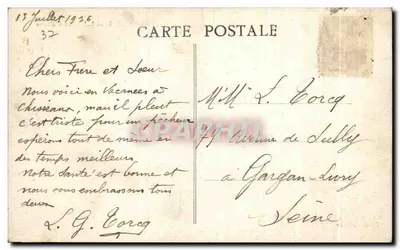 13 Juillet 1936
37
CARTE POSTALE
Chers Frère et Soeur
Nous voici en Vacances à
Chisseaux, mais il pleut
c'est triste pour un pêcheur
espérons tout de même en
des temps meilleurs
Notre santé est bonne et
nous vous embrassons tous
deux
L. G. Torcq
M. Mme L. Torcq
79 Avenue de Sully
à Gargan-Livry
Seine